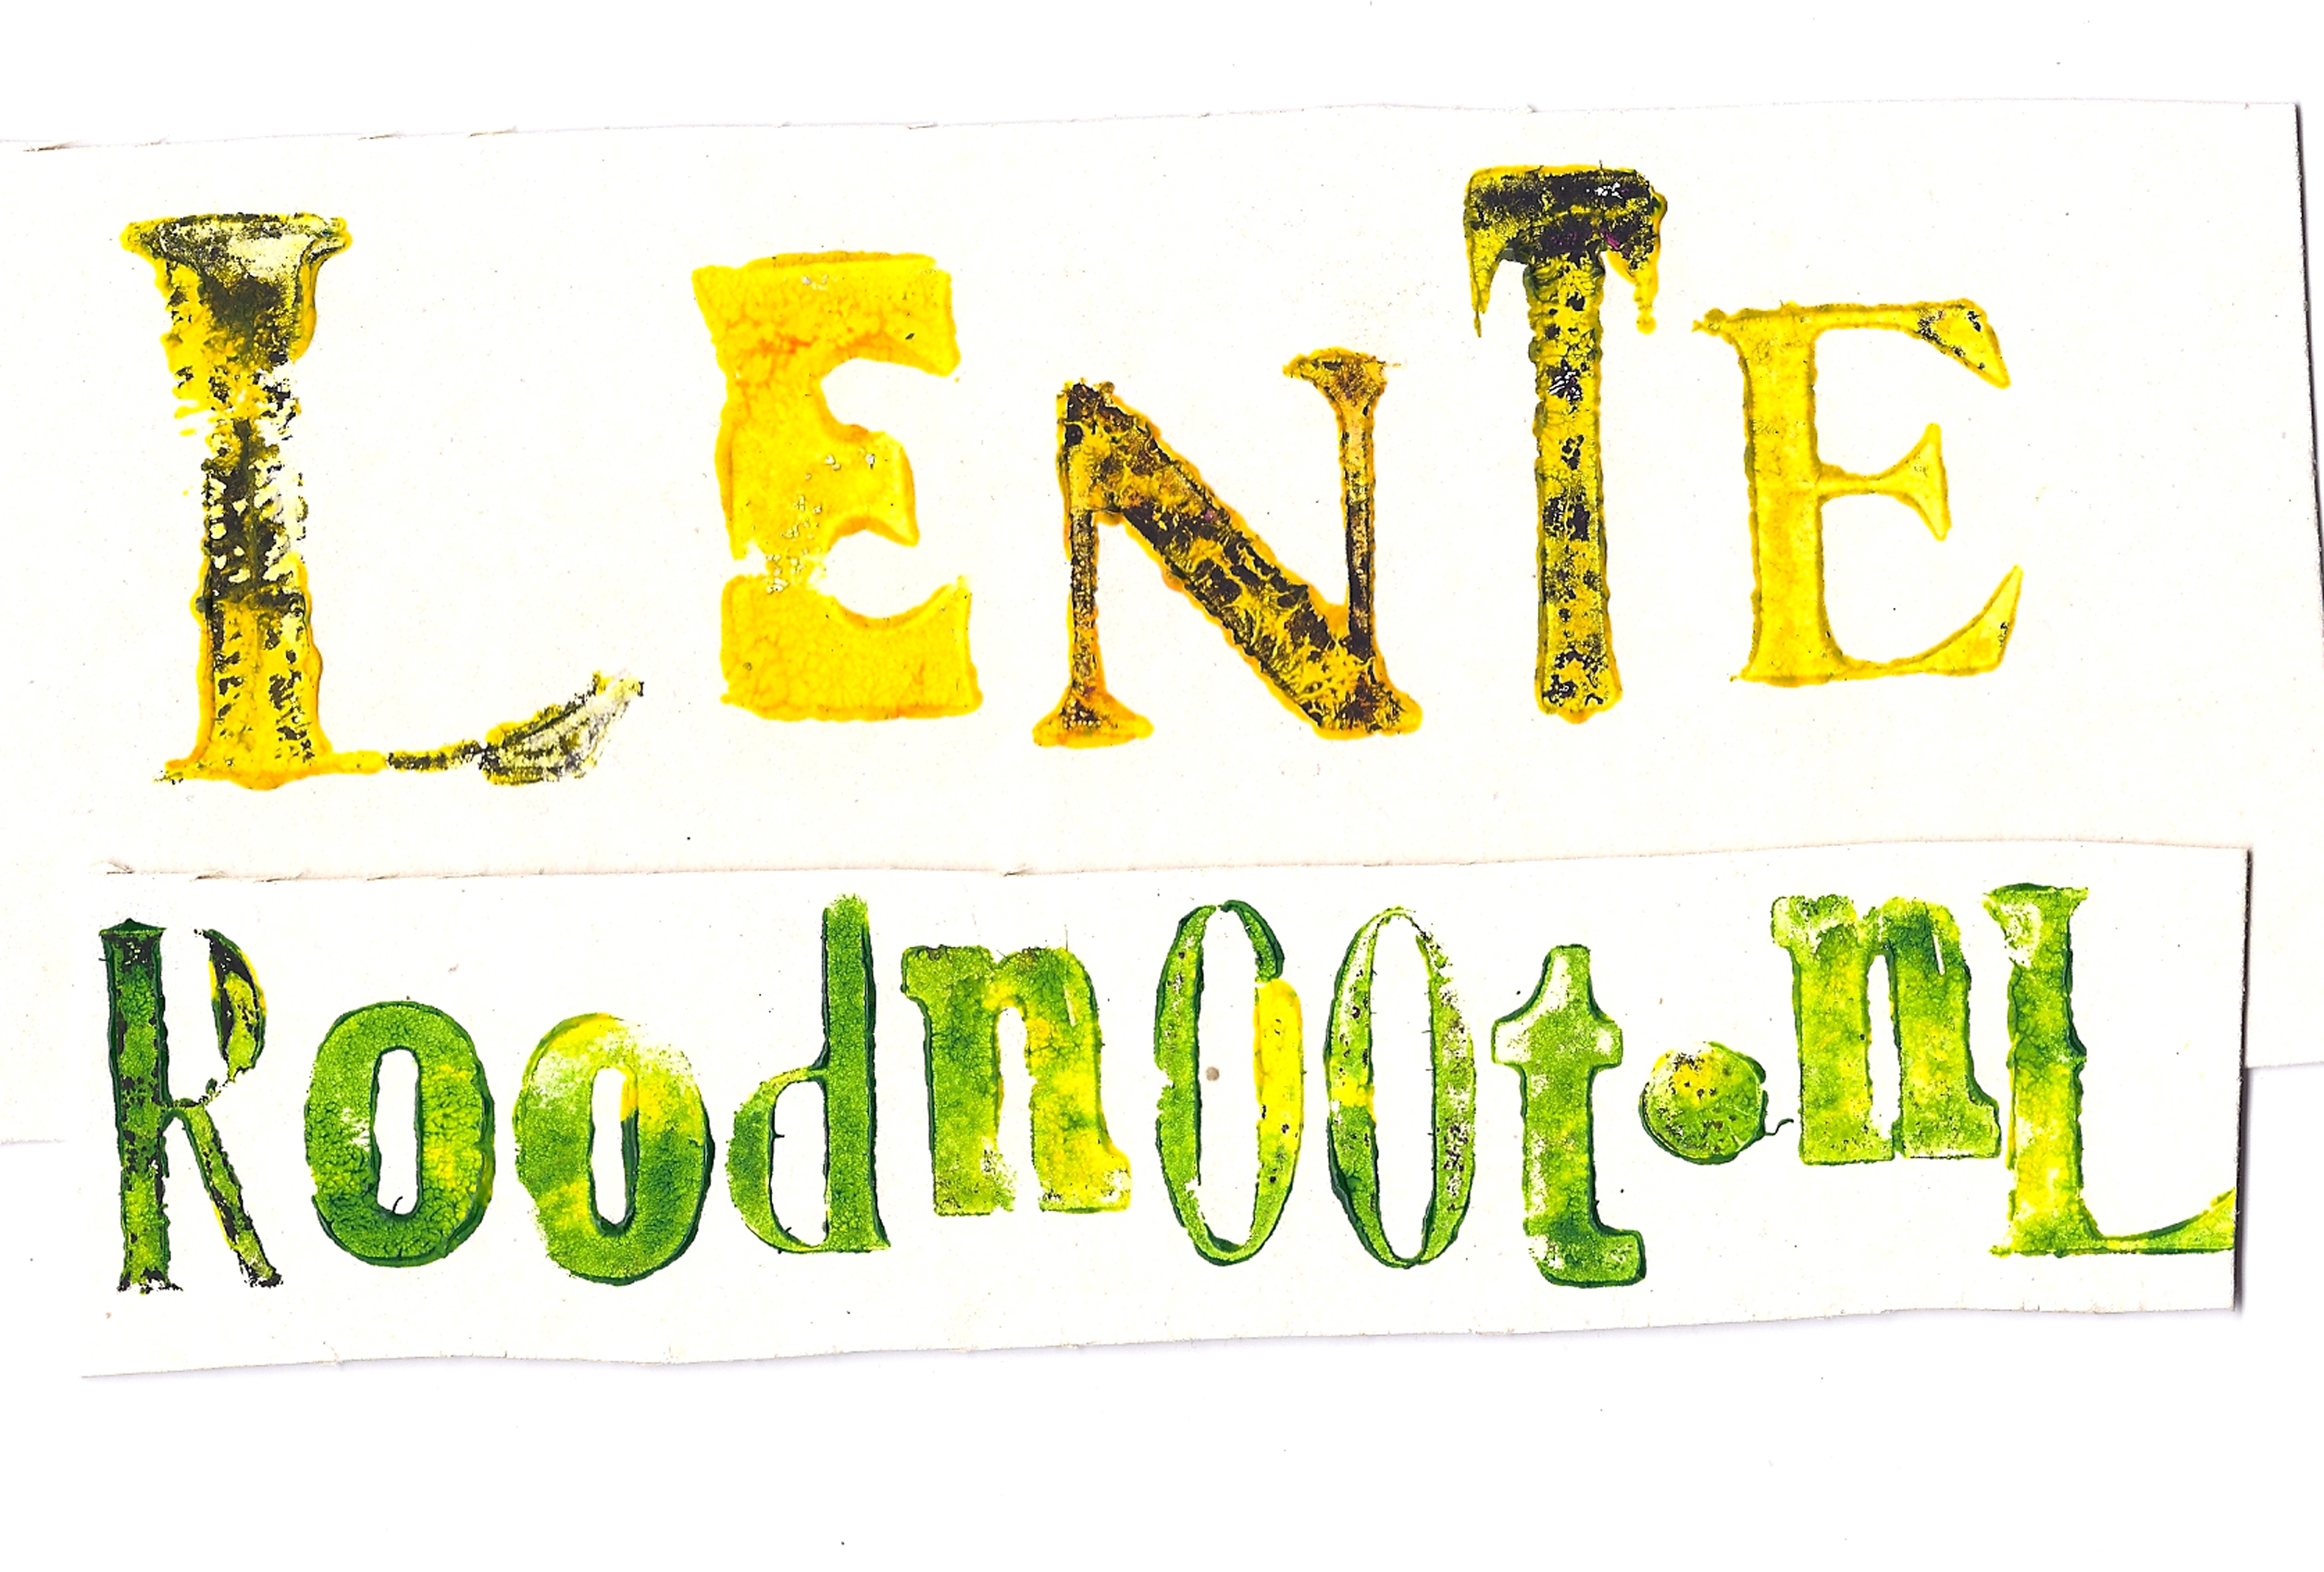 LENTE
Roodnoot.nL